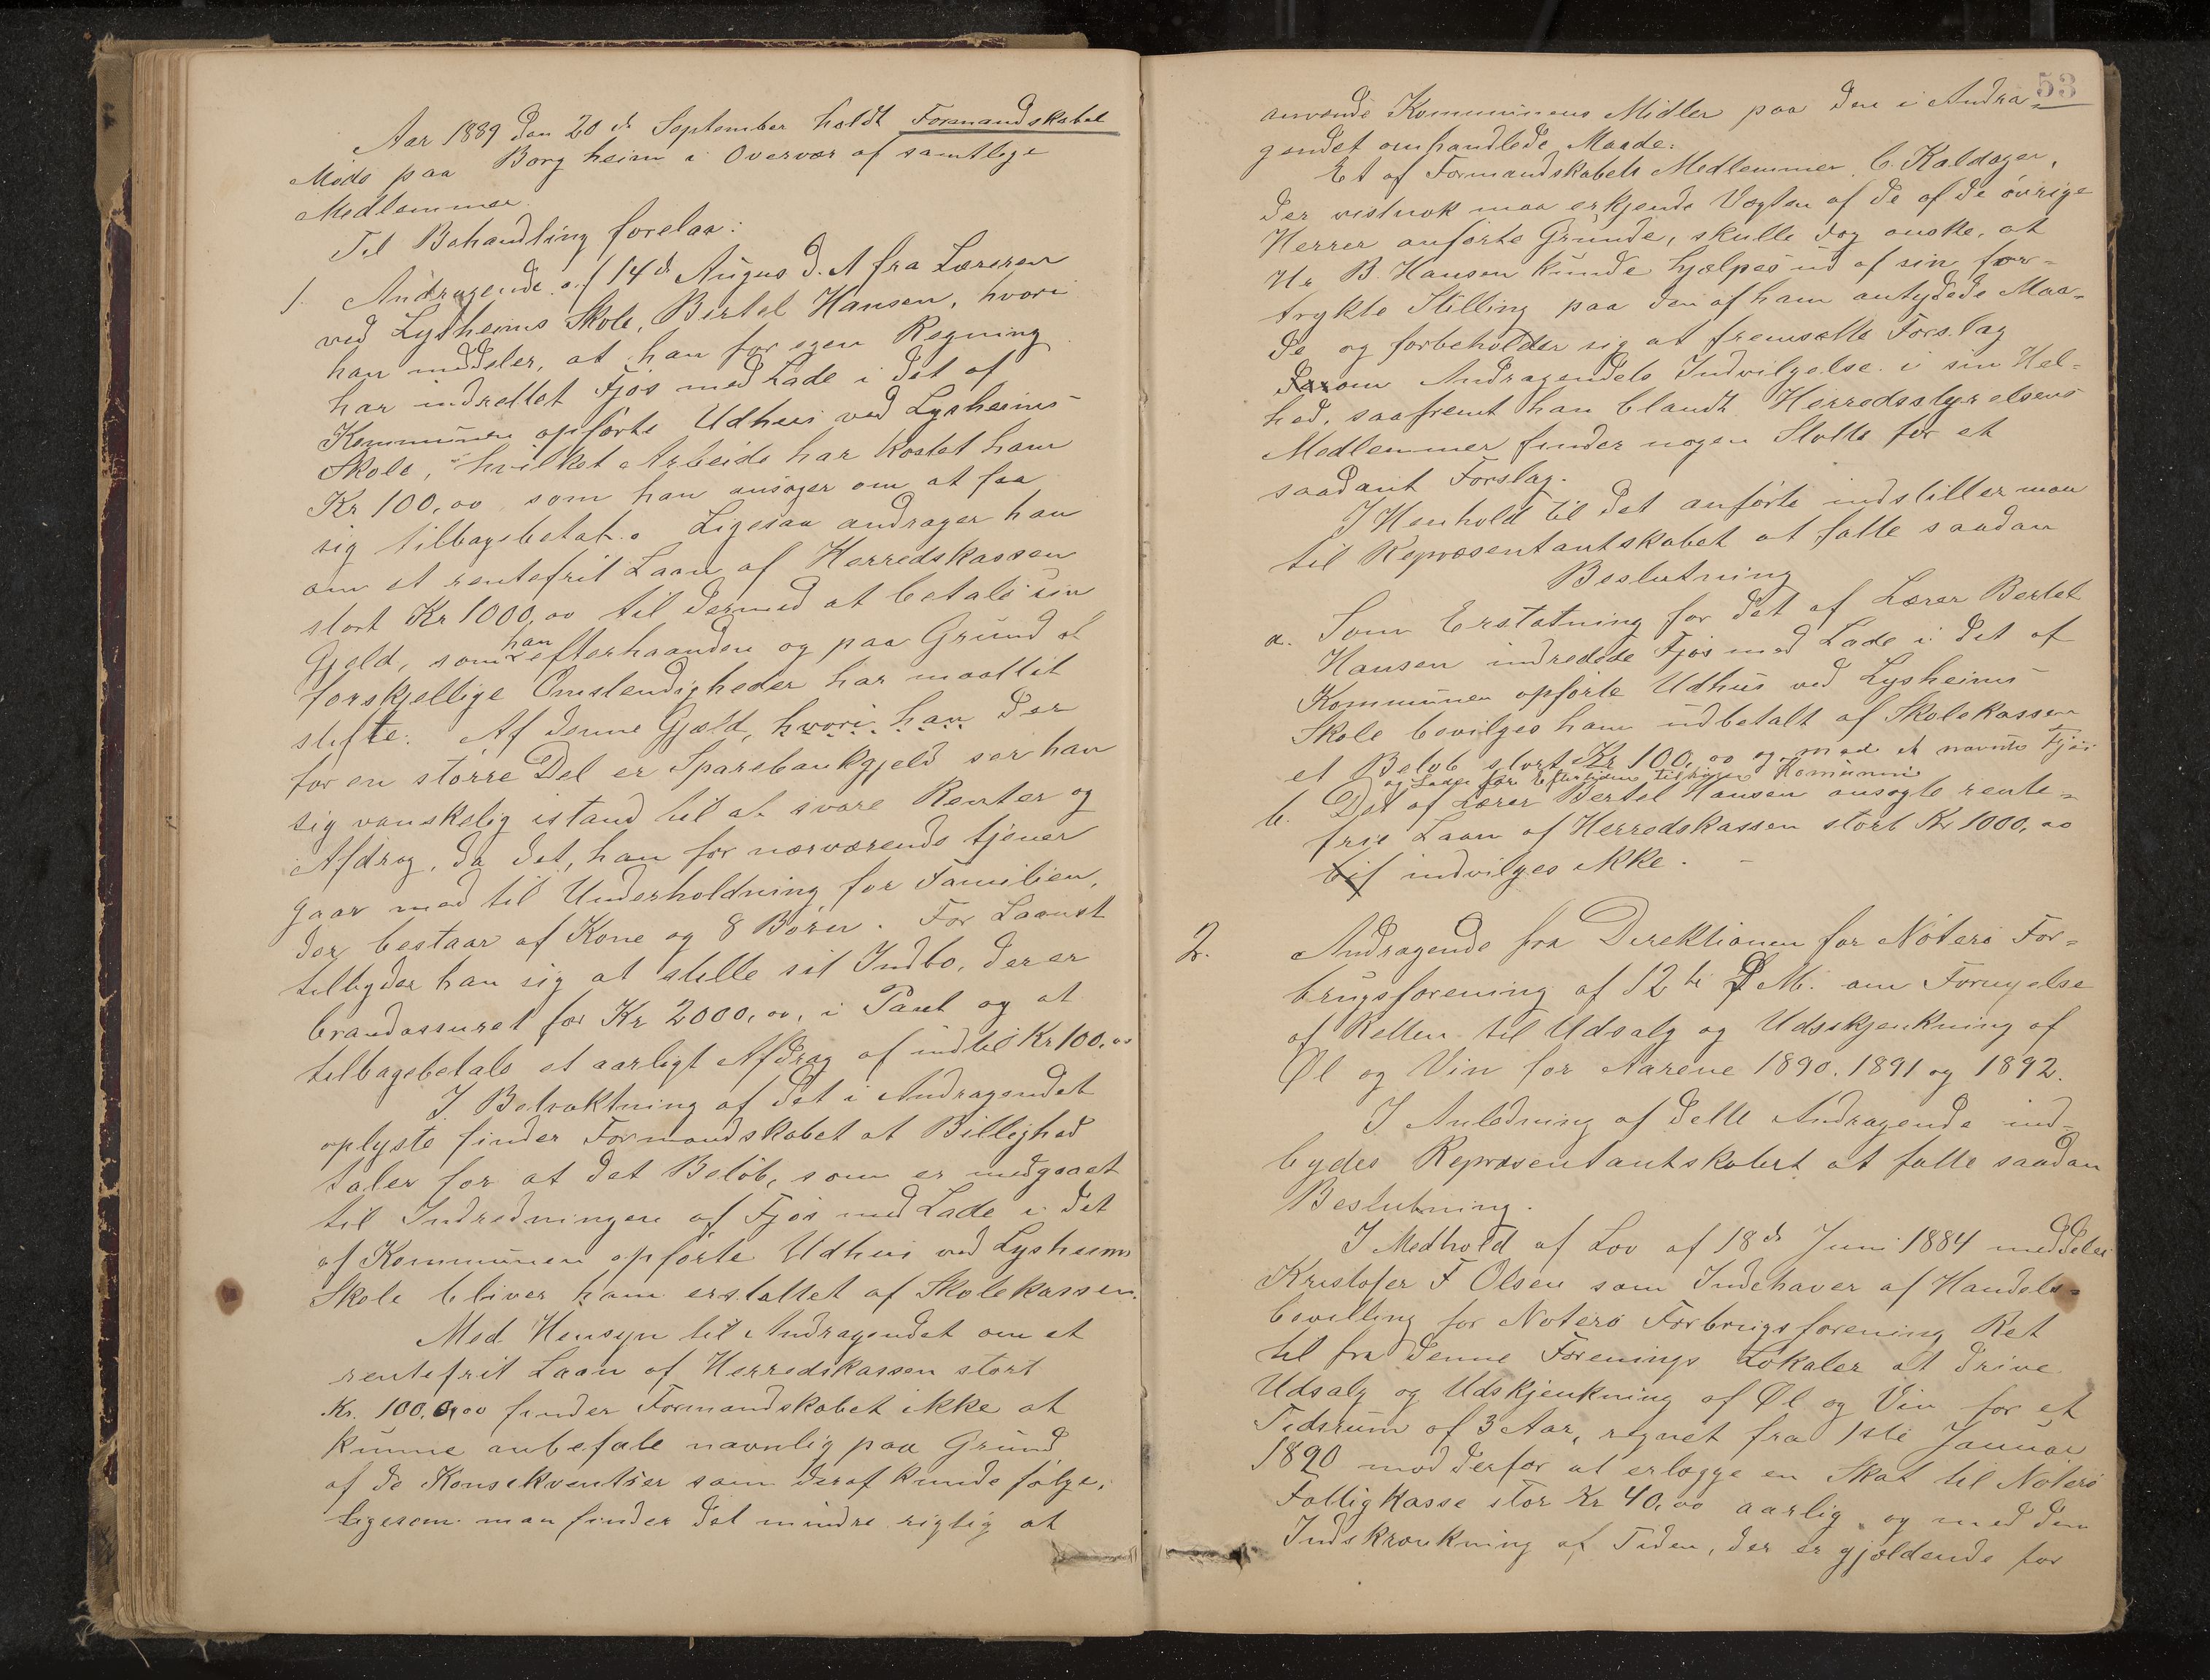 Aar 1889 den 20de September holdt Formandskabet
Møde paa Borgheim i Overvær af samtlige
Medlemmer.
Til Behandling forelaa:
1. Andragende af 14de Augus d. A fra Læreren
ved Lysheims Skole, Bertel Hansen, hvori
han meddeler, at han for egen Regning
har indrettet Fjøs med Lade i det af
Kommunen opførte Udhus ved Lysheims
Skole, hvilket Arbeide har kostet ham
Kr 100,00 som han ansøger om at faa
sig tilbagebetalt. Ligesaa andrager han
om et rentefrit Laan af Herredskassen
stort Kr 1000,00 til dermed at betale sin
Gjeld, som han efterhaanden og paa Grund af
forskjellige Omstendigheder har maattet
stifte. Af denne Gjæld, hvori han der
for en større Del er Sparebankgjeld ser han
sig vanskelig istand til at svare Renter og
Afdrag, da det, han for nærværende tjener
gaar med til Underholdning for Familien,
der bestaar af Kone og 8 Børn. For Laanet
tilbyder han sig at stille sit Indbo, der er
brandassuret for Kr 2000,00, i Pant og at
tilbagebetale et aarligt Afdrag af indtil Kr 100,00
I Betraktning af det i Andragendet
oplyste finder Formandskabet at Billighed
taler for at det Beløb, som er medgaaet
til Indredningen af Fjøs med Lade i det
af Kommunen opførte Udhus ved Lysheims
Skole bliver ham erstattet af Skolekassen.
Med Hensyn til Andragendet om et
rentefrit Laan af Herredskassen stort
Kr. 100,0,00 finder Formandskabet ikke at
kunne anbefale navnlig paa Grund
af de Konsekventser som deraf kunde følge,
ligesom man finder det mindre rigtig at
53
anvende Kommunens Midler paa den i Andra-
gendet omhandlede Maade.
Et af Formandskabets Medlemmer, C. Kaldager,
der vistnok maa erkjende Vægten af de af de øvrige
Herrer anførte Grunde, skulle dog ønske, at
Hr B. Hansen kunde hjælpes ud af sin for-
trykte Stilling paa den af ham antydede Maa-
de og forbeholder sig at fremsætte Forslag
om Andragendets Indvilgelse i sin Hel-
hed, saafremt han blandt Herredsstyrelsens
Medlemmer finder nogen Støtte for et
saadant Forslag.
I Henhold til det anførte indstiller man
til Repræsentantskabet at fatte saadan
Beslutning
a. Som Erstatning for det af Lærer Bertel
Hansen indredede Fjøs med Lade i det af
Kommunen opførte Udhus ved Lysheims
Skole bevilges ham udbetalt af Skolekassen
et Beløb stort Kr 100,00 og mod at nævnte Fjøs
og Lade for Eftertiden tilhører Komunen
b. Det af Lærer Bertel Hansen ansøgte rente-
frie Laan af Herredskassen stort Kr 1000,00
indvilges ikke. –
2. Andragende fra Direktionen for Nøterø For-
brugsforening af 12te d M. om Fornyelse
af Retten til Udsalg og Udskjenkning af
Øl og Vin for Aarene 1890. 1891 og 1892.
I Anledning af dette Andragende ind-
bydes Repræsentantskabet at fatte saadan
Beslutning.
I Medhold af Lov af 18de Juni 1884 meddeles
Kristofer F Olsen som Indehaver af Handels-
bevilling for Nøterø Forbrugsforening Ret
til fra denne Forenings Lokaler at drive
Udsalg og Udskjenkning af Øl og Vin for et
Tidsrum af 3 Aar, regnet fra 1ste Januar
1890 mod derfor at erlægge en Skat til Nøterø
Fattigkasse stor Kr 40,00 aarlig og med den
Indskrænkning af Tiden, der er gjældende for